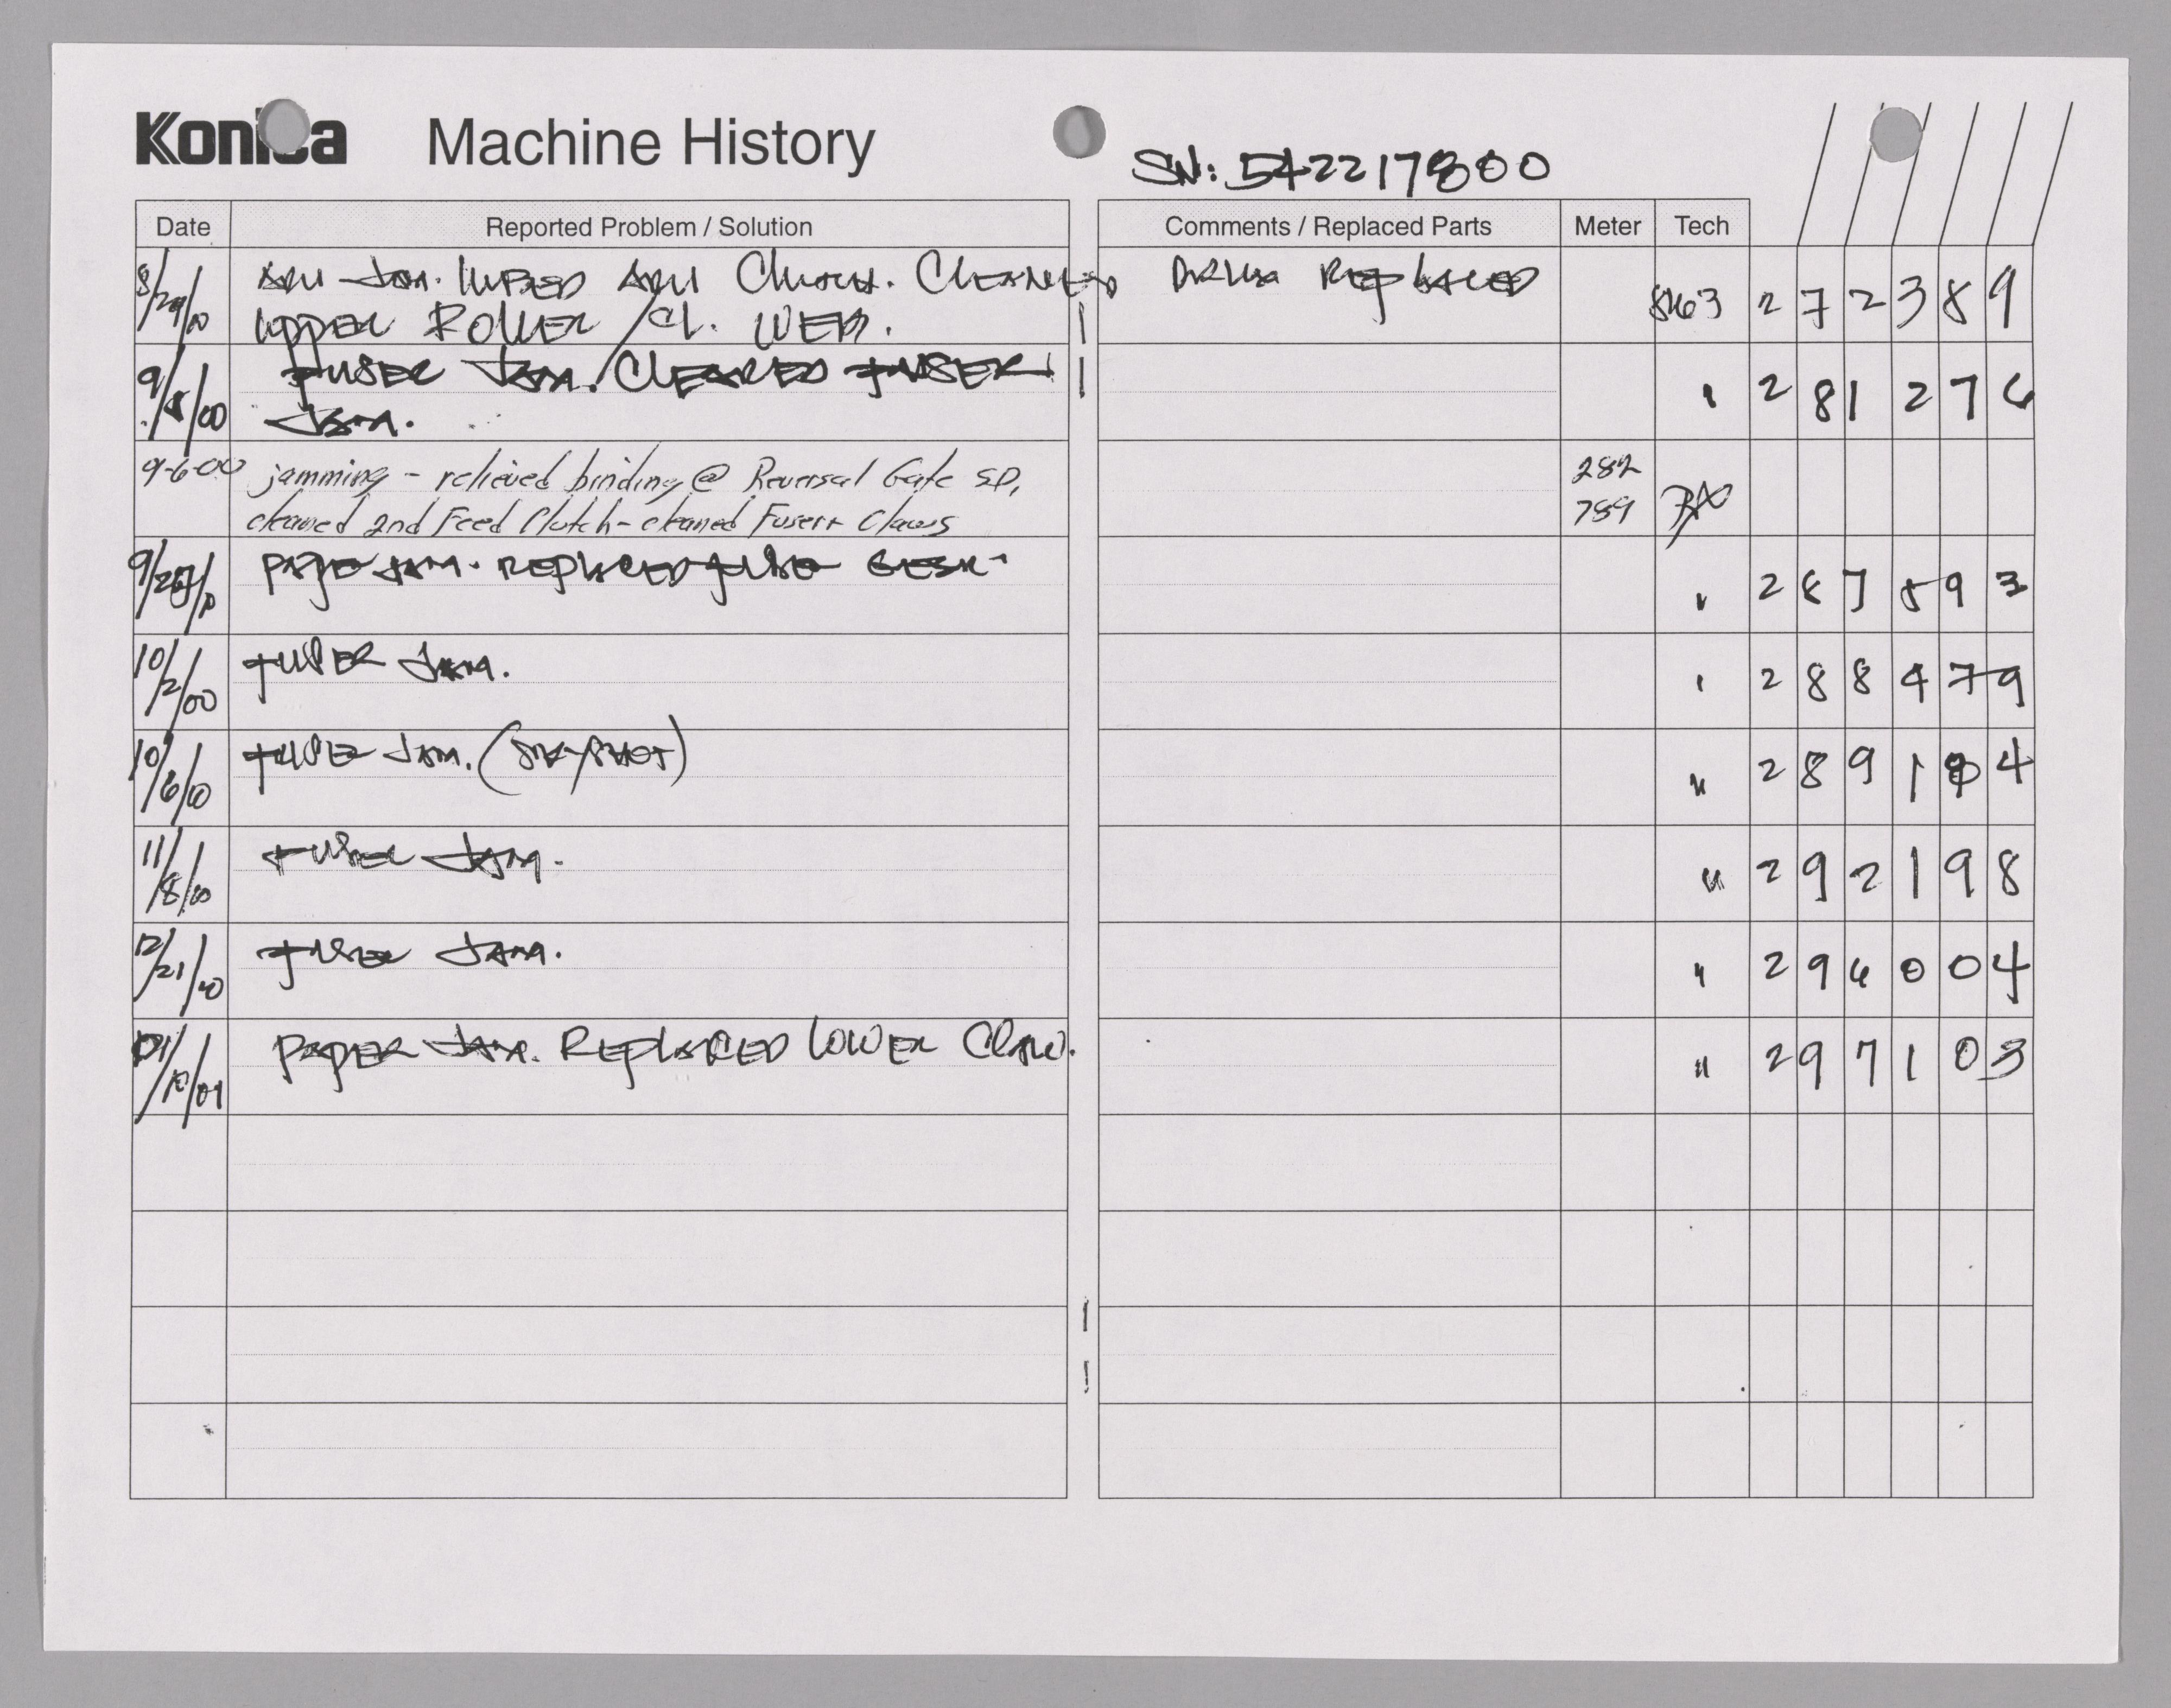 Konica Machine History
SN: 542217800
Date Reported Problem / Solution Comments / Replaced Parts Meter Tech
8/29/00 ADU JAM. LUBED ADU Clutch. CLEANED DRUM REPLACED 8463 2 7 2 3 8 9
UPPER ROLLER / Cl. WEB.
9/5/00 FUSER JAM. / CLEARED FUSER " 2 8 1 2 7 6
JAM.
9-6-00 jamming - relieved binding @ Reversal Gate SD, 282
cleaned 2nd Feed Clutch - cleaned Fuser + Claws 789
PAPER JAM. REPLACED FUSER " 2 8 7 8 9 3
10/2/00 FUSER JAM. " 2 8 8 4 7 9
10/6/00 FUSER JAM. " 2 8 9 1 4
11/8/00 FUSER JAM. " 2 9 2 1 9 8
12/21/00 FUSER JAM. " 2 9 6 0 0 4
01/10/01 PAPER JAM. REPLACED LOWER Claw. " 2 9 7 1 0 3